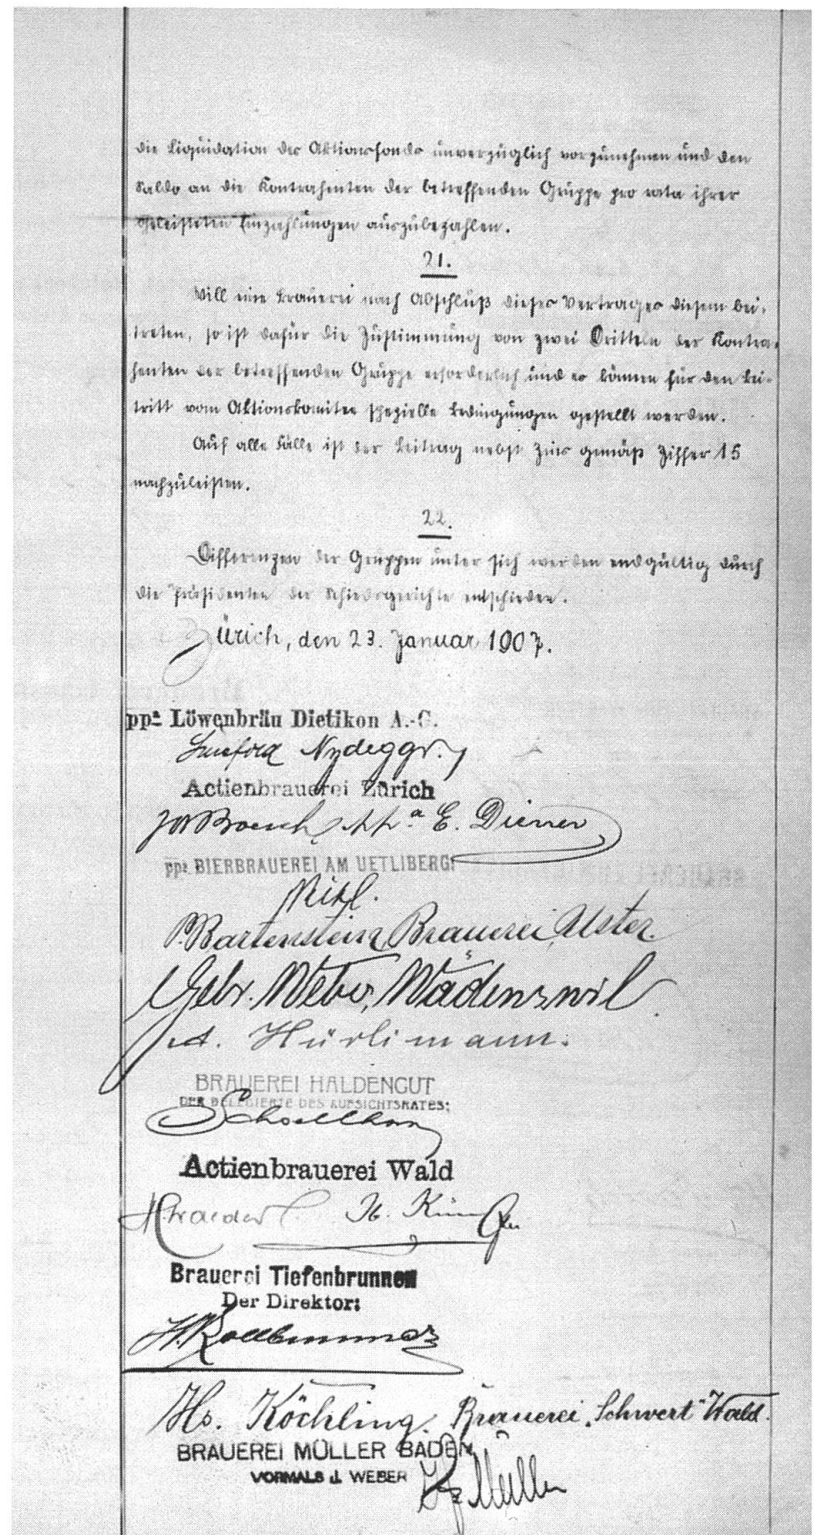 die Liquidation des Aktionsfonds unverzüglich vorzunehmen und den
Saldo an die Kontrahenten der betreffenden Gruppe pro rata ihrer
geleisteten Einzahlungen auszubezahlen.
21.
Will eine Brauerei nach Abschluß dieses Vertrages diesem bei-
treten, so ist dafür die Zustimmung von zwei Dritteln der Kontra-
henten der betreffenden Gruppe erforderlich und es können für den Bei-
tritt vom Aktionskomitee spezielle Bedingungen gestellt werden.
Auf alle Fälle ist der Beitrag nebst Zins gemäß Ziffer 15
nachzuleisten.
22.
Differenzen der Gruppen unter sich werden endgültig durch
die Präsidenten der Schiedsgerichte entschieden.
Zürich, den 23. Januar 1907.
ppa Löwenbräu Dietikon A.-G.
Nydegger
Actienbrauerei Zürich
ppa E. Diener
ppa. BIERBRAUEREI AM UETLIBERG:
P. Bartenstein, Brauerei, Uster
Gebr. Weber, Wädenswil.
A. Hürlimann.
BRAUEREI HALDENGUT
DER DELEGIERTE DES AUFSICHTSRATES:
Schoellhorn
Actienbrauerei Wald
Brauerei Tiefenbrunnen
Der Direktor:
Hs. Köchling. Brauerei „Schwert" Wald.
BRAUEREI MÜLLER BADEN
VORMALS J. WEBER
Müller